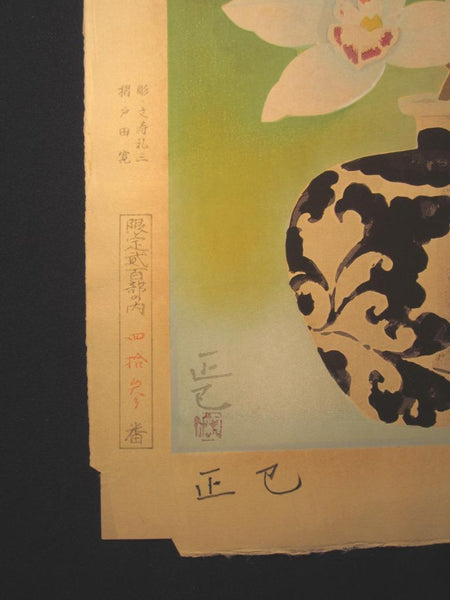 彫 之寿礼三
摺 戸田寛
限定貳百部の内 四拾参番
正巳
正巳